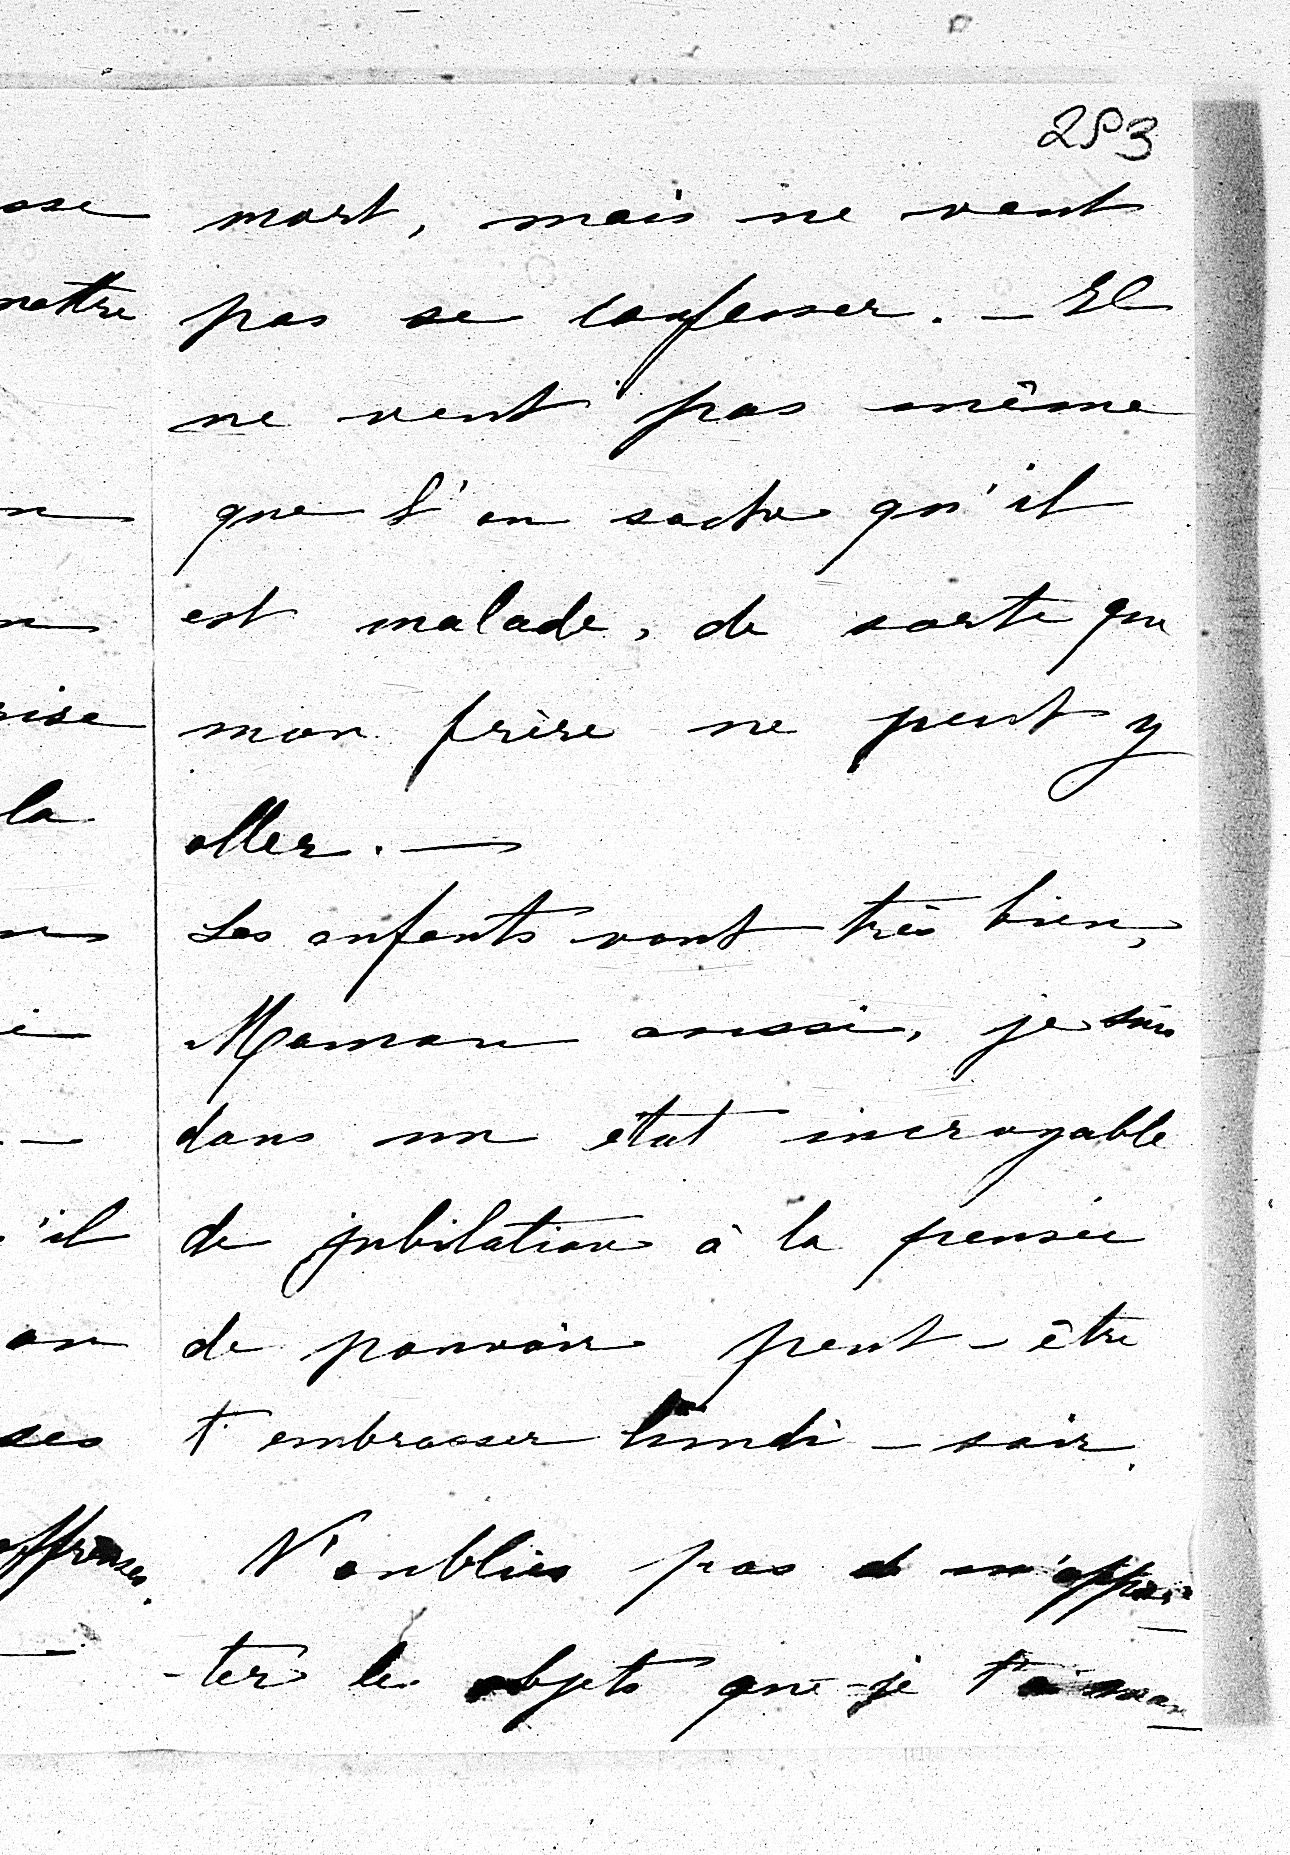 283
mort, mais ne veut
pas se confesser. - Il
ne veut pas même
que l'on sache qu'il
est malade, de sorte que
mon frère ne peut y
aller. —
Les enfants vont très bien,
Maman aussi, je suis
dans un état incroyable
de jubilation à la pensée
de pouvoir peut-être
t'embrasser lundi-soir.
N'oublies pas de m'appor-
-ter les objets que je t'ai